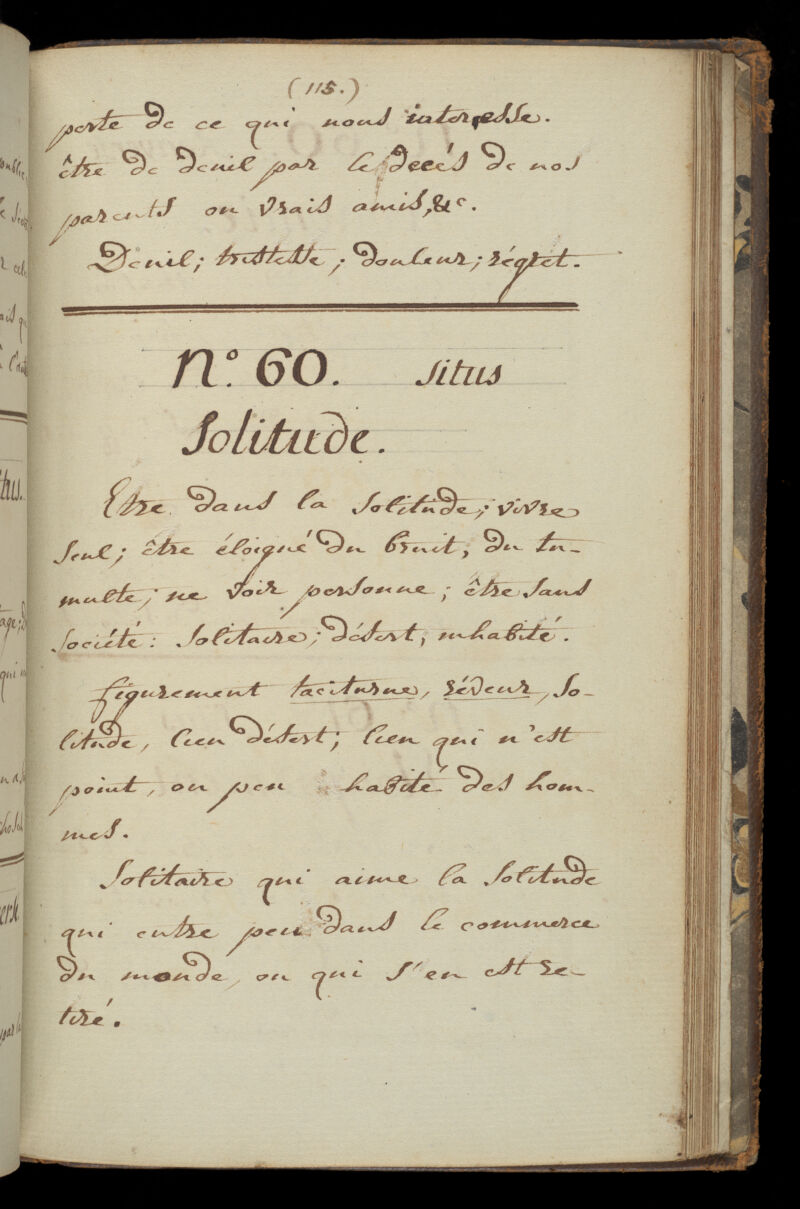 (115.)
perte de ce qui nous interesse.
être de deuil par le decés de nos
parents ou vrais amis, &c.
Deuil; tristesse; douleur; régret.
N.º 60. Situs
Solitude.
Etre dans la solitude; vivre
seul; être éloigné du bruit, du tu-
multe; ne voir personne; être sans
société: solitaire; désert, inhabité.
figurement taciturne, rêveur, so-
litude, lieu désert; lieu qui n'est
point, ou peu habité des hom-
mes.
Solitaire qui aime la solitude
qui entre peu dans le commerce
du monde, ou qui s'en est re-
tiré.